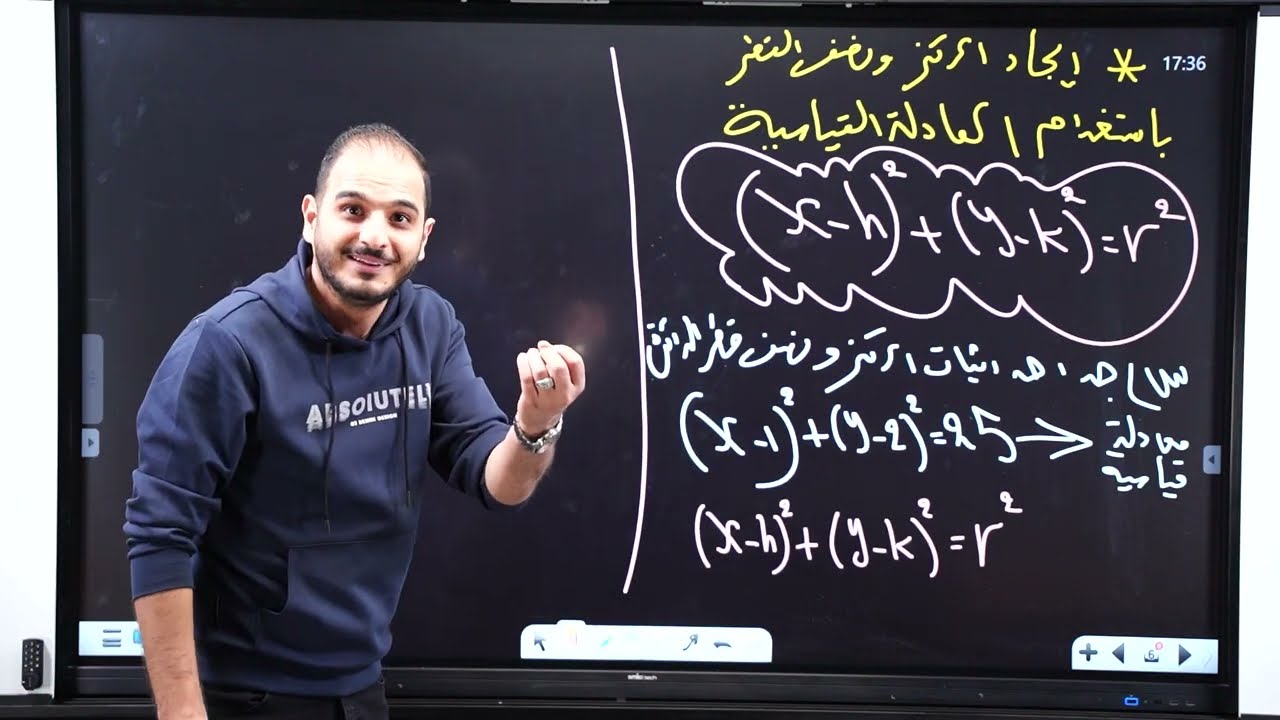 17:36
* ايجاد المركز ونصف القطر
باستخدام المعادلة القياسية
(x-h)² + (y-k)² = r²
س١/ جد احداثيات المركز ونصف قطر الدائرة
(x-1)² + (y-2)² = 25 → معادلة
قياسية
(x-h)² + (y-k)² = r²
ABSOLUTELY